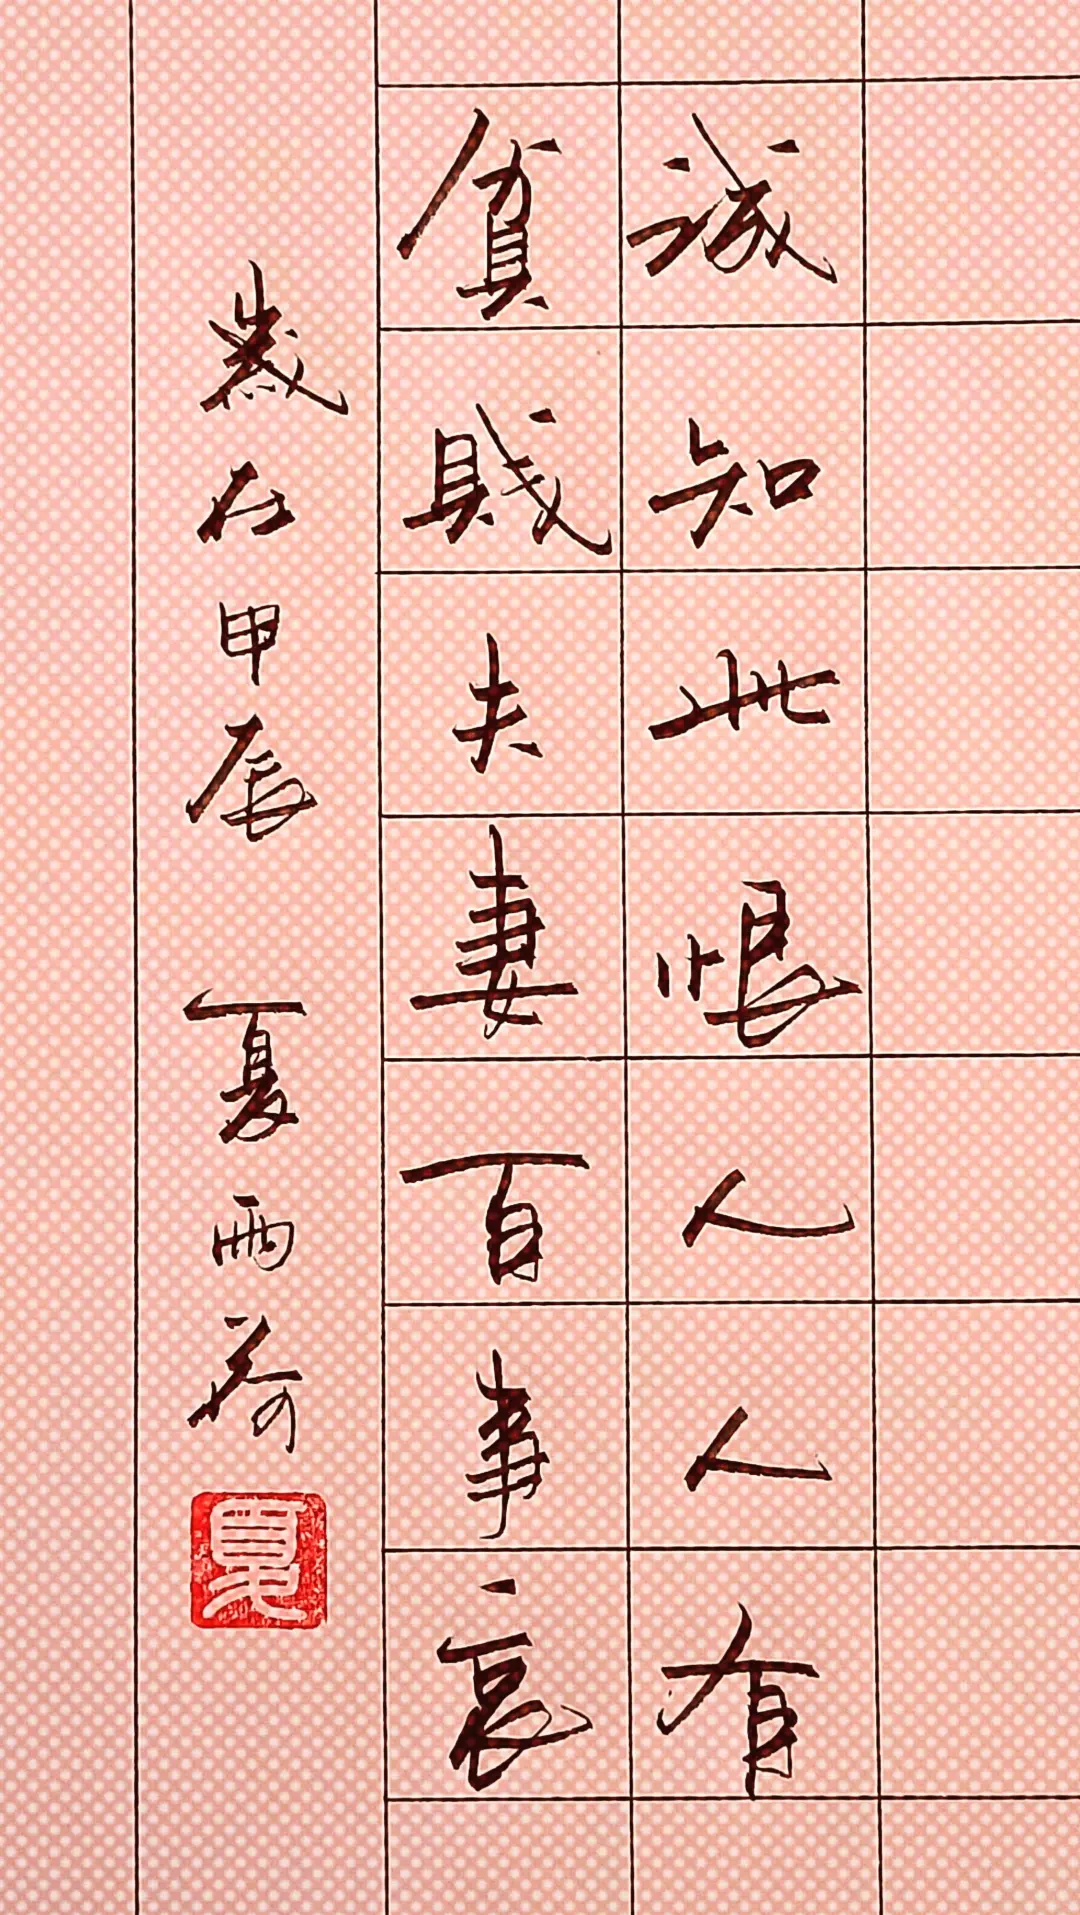 誠知此恨人人有
貧賤夫妻百事哀
歲在甲辰 夏雨荷
夏